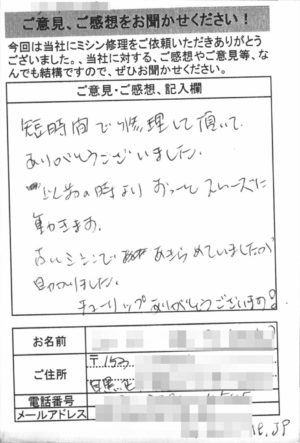 ご意見、ご感想をお聞かせください！
今回は当社にミシン修理をご依頼いただきありがとう
ございました。、当社に対する、ご感想やご意見等、な
んでも結構ですので、ぜひお聞かせください。
ご意見・ご感想、記入欄
短時間で修理して頂いて
ありがとうございました。
以前の時より ずっと スムーズに
動きます。
古いミシンで あきらめていましたが
助かりました。
チューリップ ありがとうございます!
お名前
ご住所
〒153
目黒
電話番号
メールアドレス
.JP